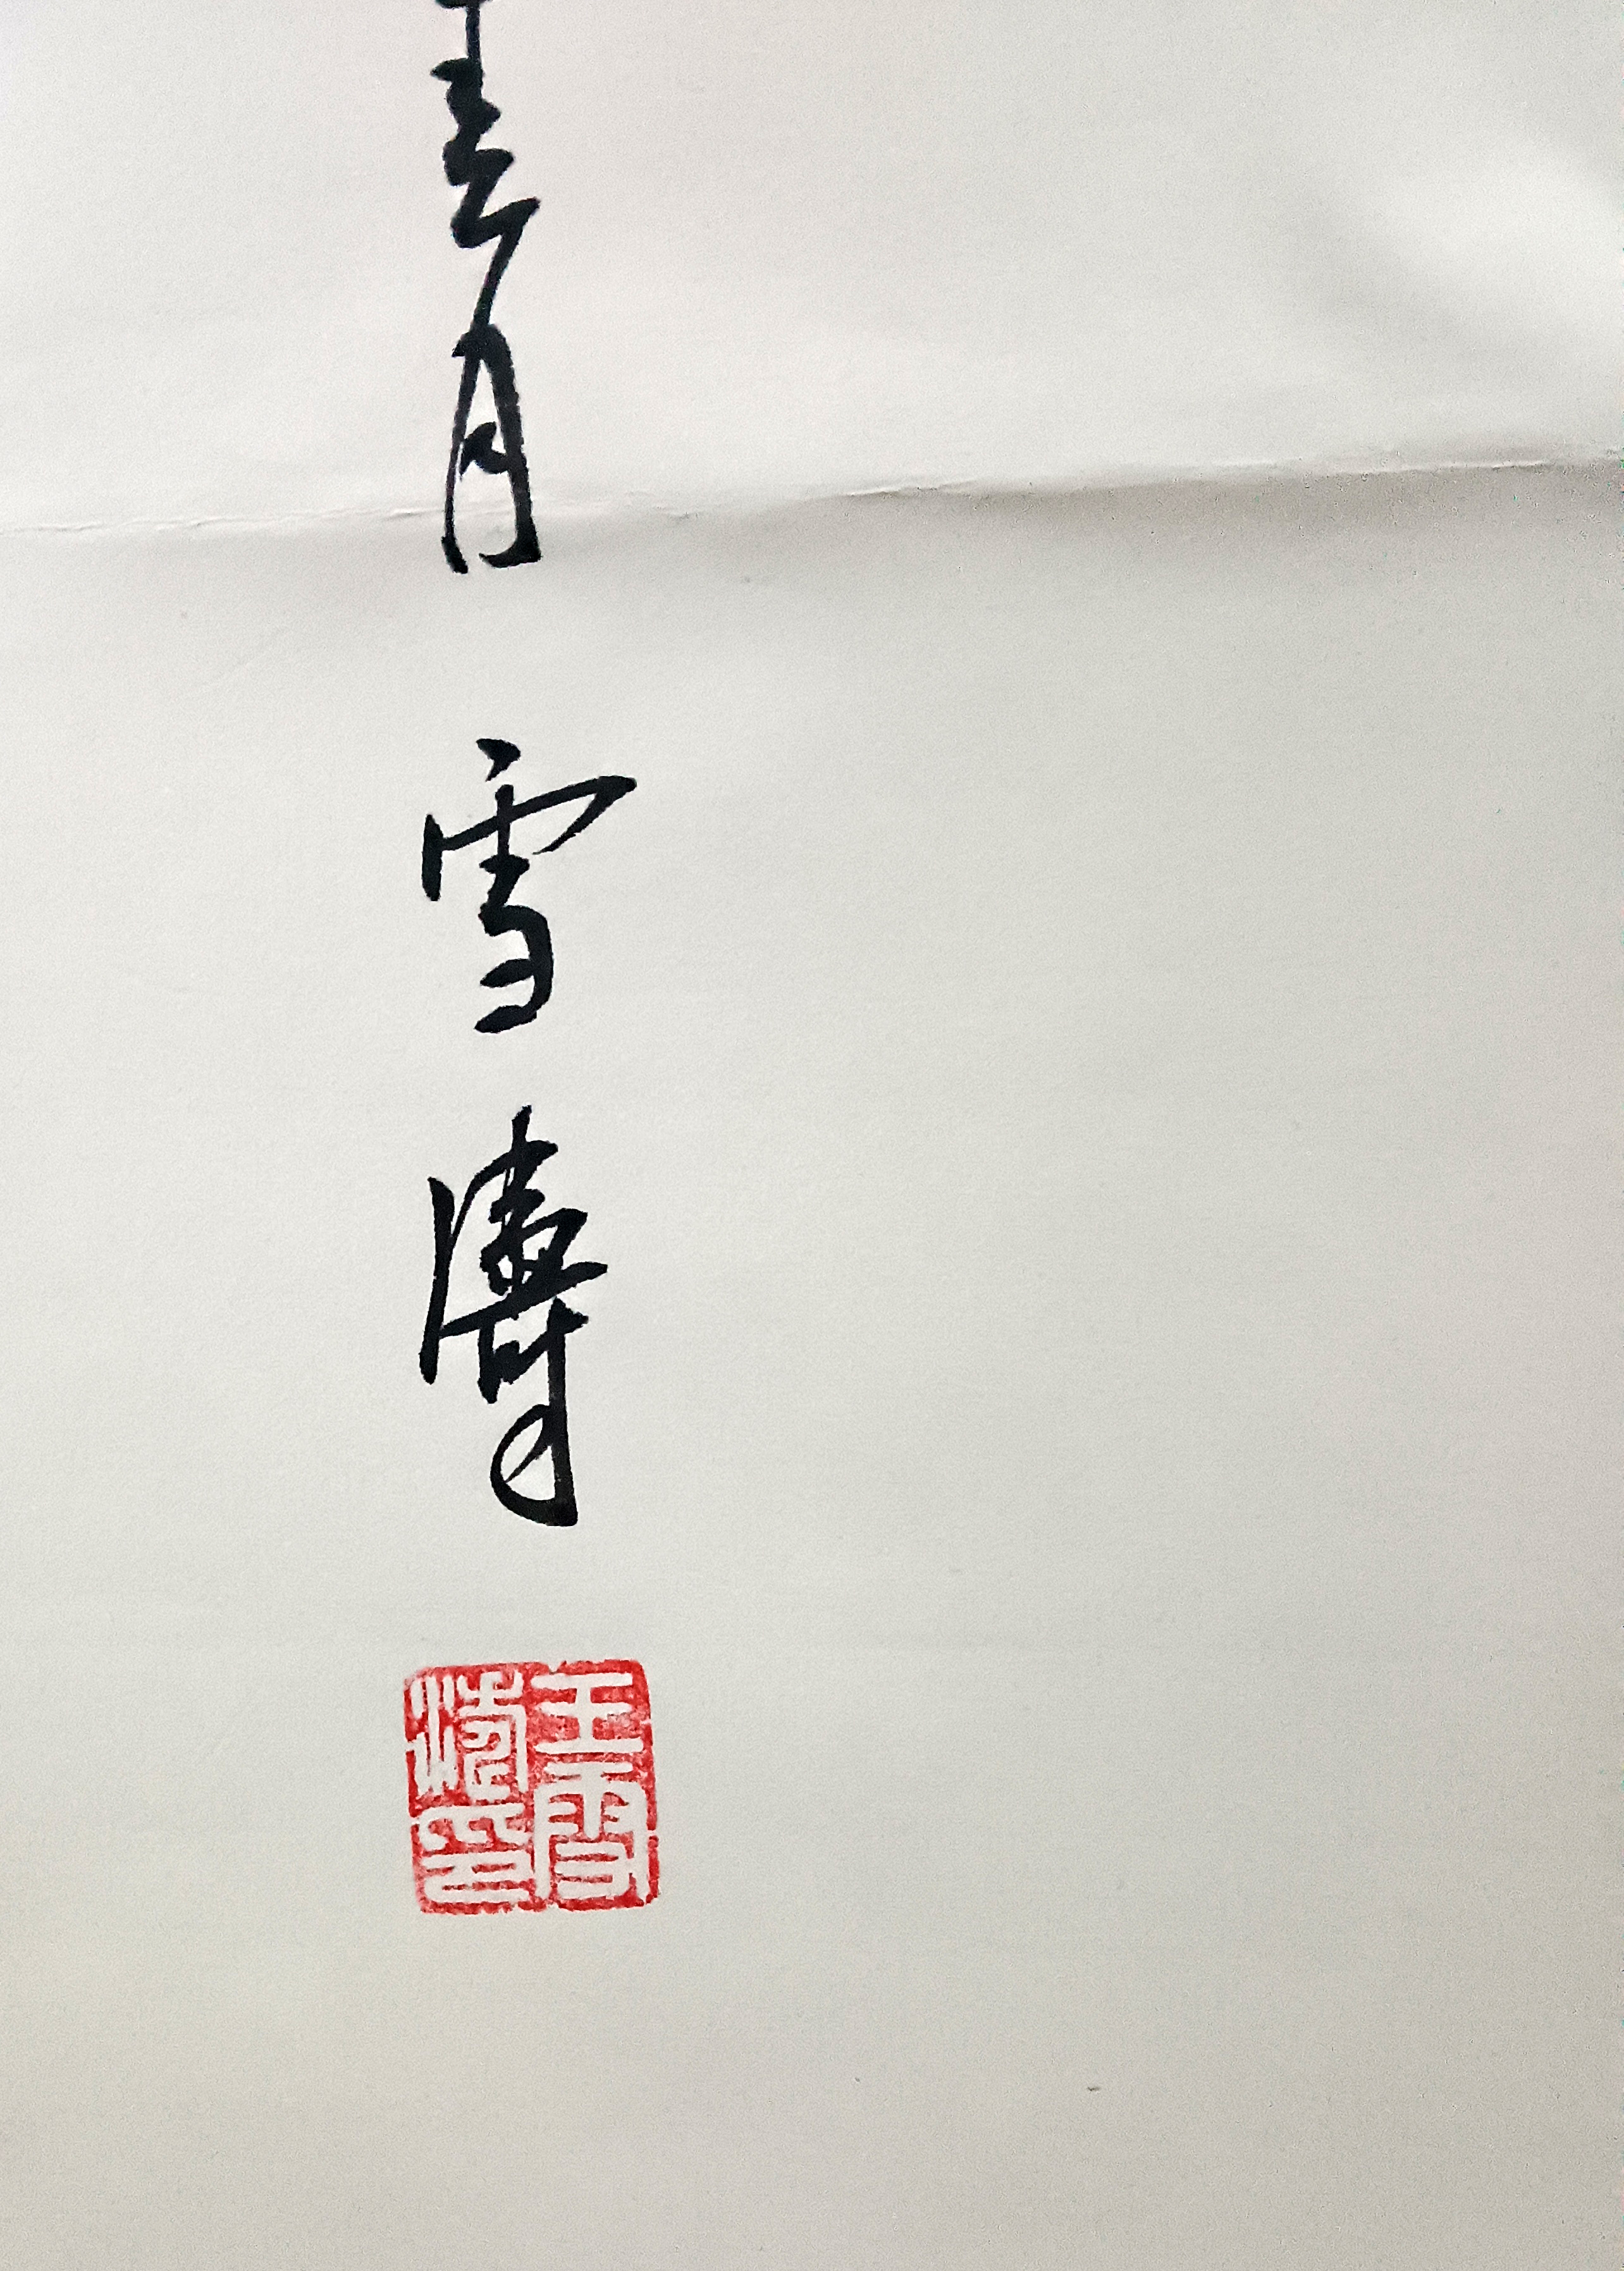 月
雪濤
王雪
濤印